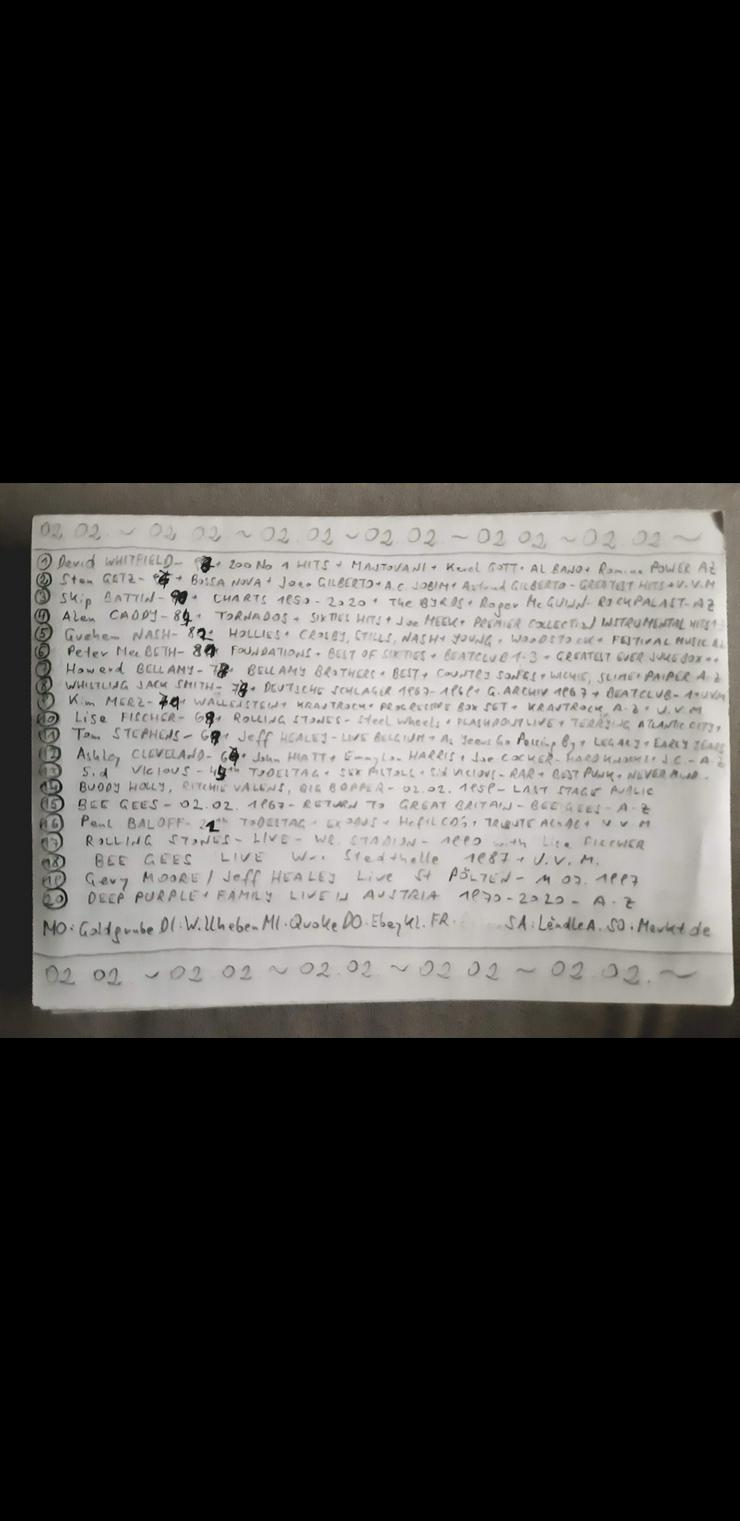 02 02. ~ 02 02 ~ 02.02 ~ 02.02. ~ 02 02 ~ 02.02. ~
1 David WHITFIELD - + 200 No 1 HITS + MANTOVANI + Karel GOTT + AL BANO + Romina POWER AZ
2 Stan GETZ - + BOSSA NOVA + Joao GILBERTO + A.C. JOBIM + Astrud GILBERTO - GREATEST HITS + V.V.M
3 Skip BATTIN - + CHARTS 1950 - 2020 + The BYRDS + Roger Mc GUINN - ROCKPALAST - AZ
4 Alan CADDY - + TORNADOS + SIXTIES HITS + Joe MEEK + PREMIER COLLECTION INSTRUMENTAL HITS +
5 Graham NASH - 82 + HOLLIES + CROSBY, STILLS, NASH + YOUNG + WOODSTOCK + FESTIVAL MUSIC AZ
6 Peter MacBETH - FOUNDATIONS + BEST OF SIXTIES + BEATCLUB 1-3 + GREATEST EVER JUKEBOX ++
7 Howard BELLAMY - + BELLAMY BROTHERS + BEST + COUNTRY SONGS + WICKIE, SLIME + PAIPER A-Z
8 WHISTLING JACK SMITH - + DEUTSCHE SCHLAGER 1967 - 1969 + G. ARCHIV 1967 + BEATCLUB -
9 Kim MERZ - + WALLENSTEIN + KRAUTROCK + PROGRESSIVE BOX SET + KRAUTROCK A-Z + U.V.M
10 Lisa FISCHER - + ROLLING STONES - Steel Wheels + FLASHPOINT LIVE + TERRYING ATLANTIC CITY +
11 Tom STEPHENS - + Jeff HEALEY - LIVE BELGIUM + As Years Go Passing By + LEGACY + EARLY YEARS
12 Ashley CLEVELAND - + John HIATT + Emmylou HARRIS + Joe COCKER - HARD KNOCKS + J.C. - A-Z
13 Sid VICIOUS - TODESTAG + SEX PISTOLS + Sid VICIOUS - RAR + BEST PUNK + NEVER MIND -
14 BUDDY HOLLY, RITCHIE VALENS, BIG BOPPER - 02.02. 1959 - LAST STAGE PUBLIC
15 BEE GEES - 02.02. 1967 - RETURN TO GREAT BRITAIN - BEE GEES - A-Z
16 Paul BALOFF - TODESTAG + EXODUS + + TRIBUTE AC+DC + U V M
17 ROLLING STONES - LIVE - WR. STADION - 1990 with Lisa FISCHER
18 BEE GEES LIVE Wr. Stadthalle 1987 + U.V.M.
19 Gary MOORE / Jeff HEALEY Live St PÖLTEN - 11 07. 1997
20 DEEP PURPLE + FAMILY LIVE IN AUSTRIA 1970 - 2020 - A-Z
MO: Goldgrube DI: Willhaben MI: Quoka DO: Ebay Kl. FR. SA: Ländle A. SO: Markt de
02 02 ~ 02.02 ~ 02.02. ~ 02 02 ~ 02.02. ~